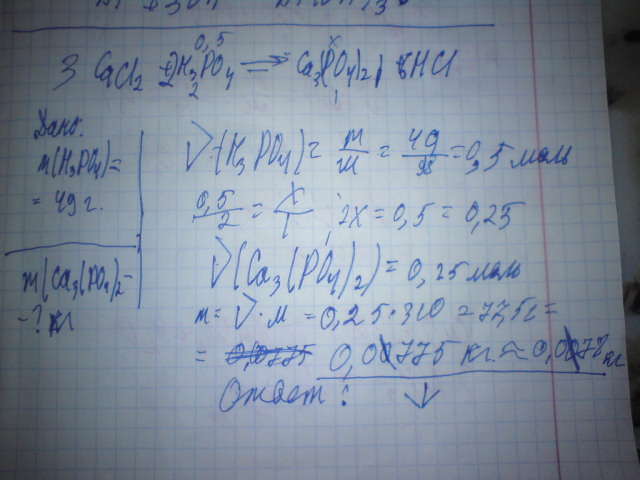 0,5 x
3 CaCl2 2H3PO4 ⇌ Ca3(PO4)2↓ 6HCl
2 1
Дано:
m(H3PO4)=
= 49 г.
m(Ca3(PO4)2-
-? кг
V(H3PO4)= m/M = 49/98 = 0,5 моль
0,5/2 = x/1 ; 2x = 0,5 = 0,25
V(Ca3(PO4)2) = 0,25 моль
m = V·M = 0,25·310 = 77,5г =
= 0,0775 кг ≈ 0,078 кг
Ответ: ↓